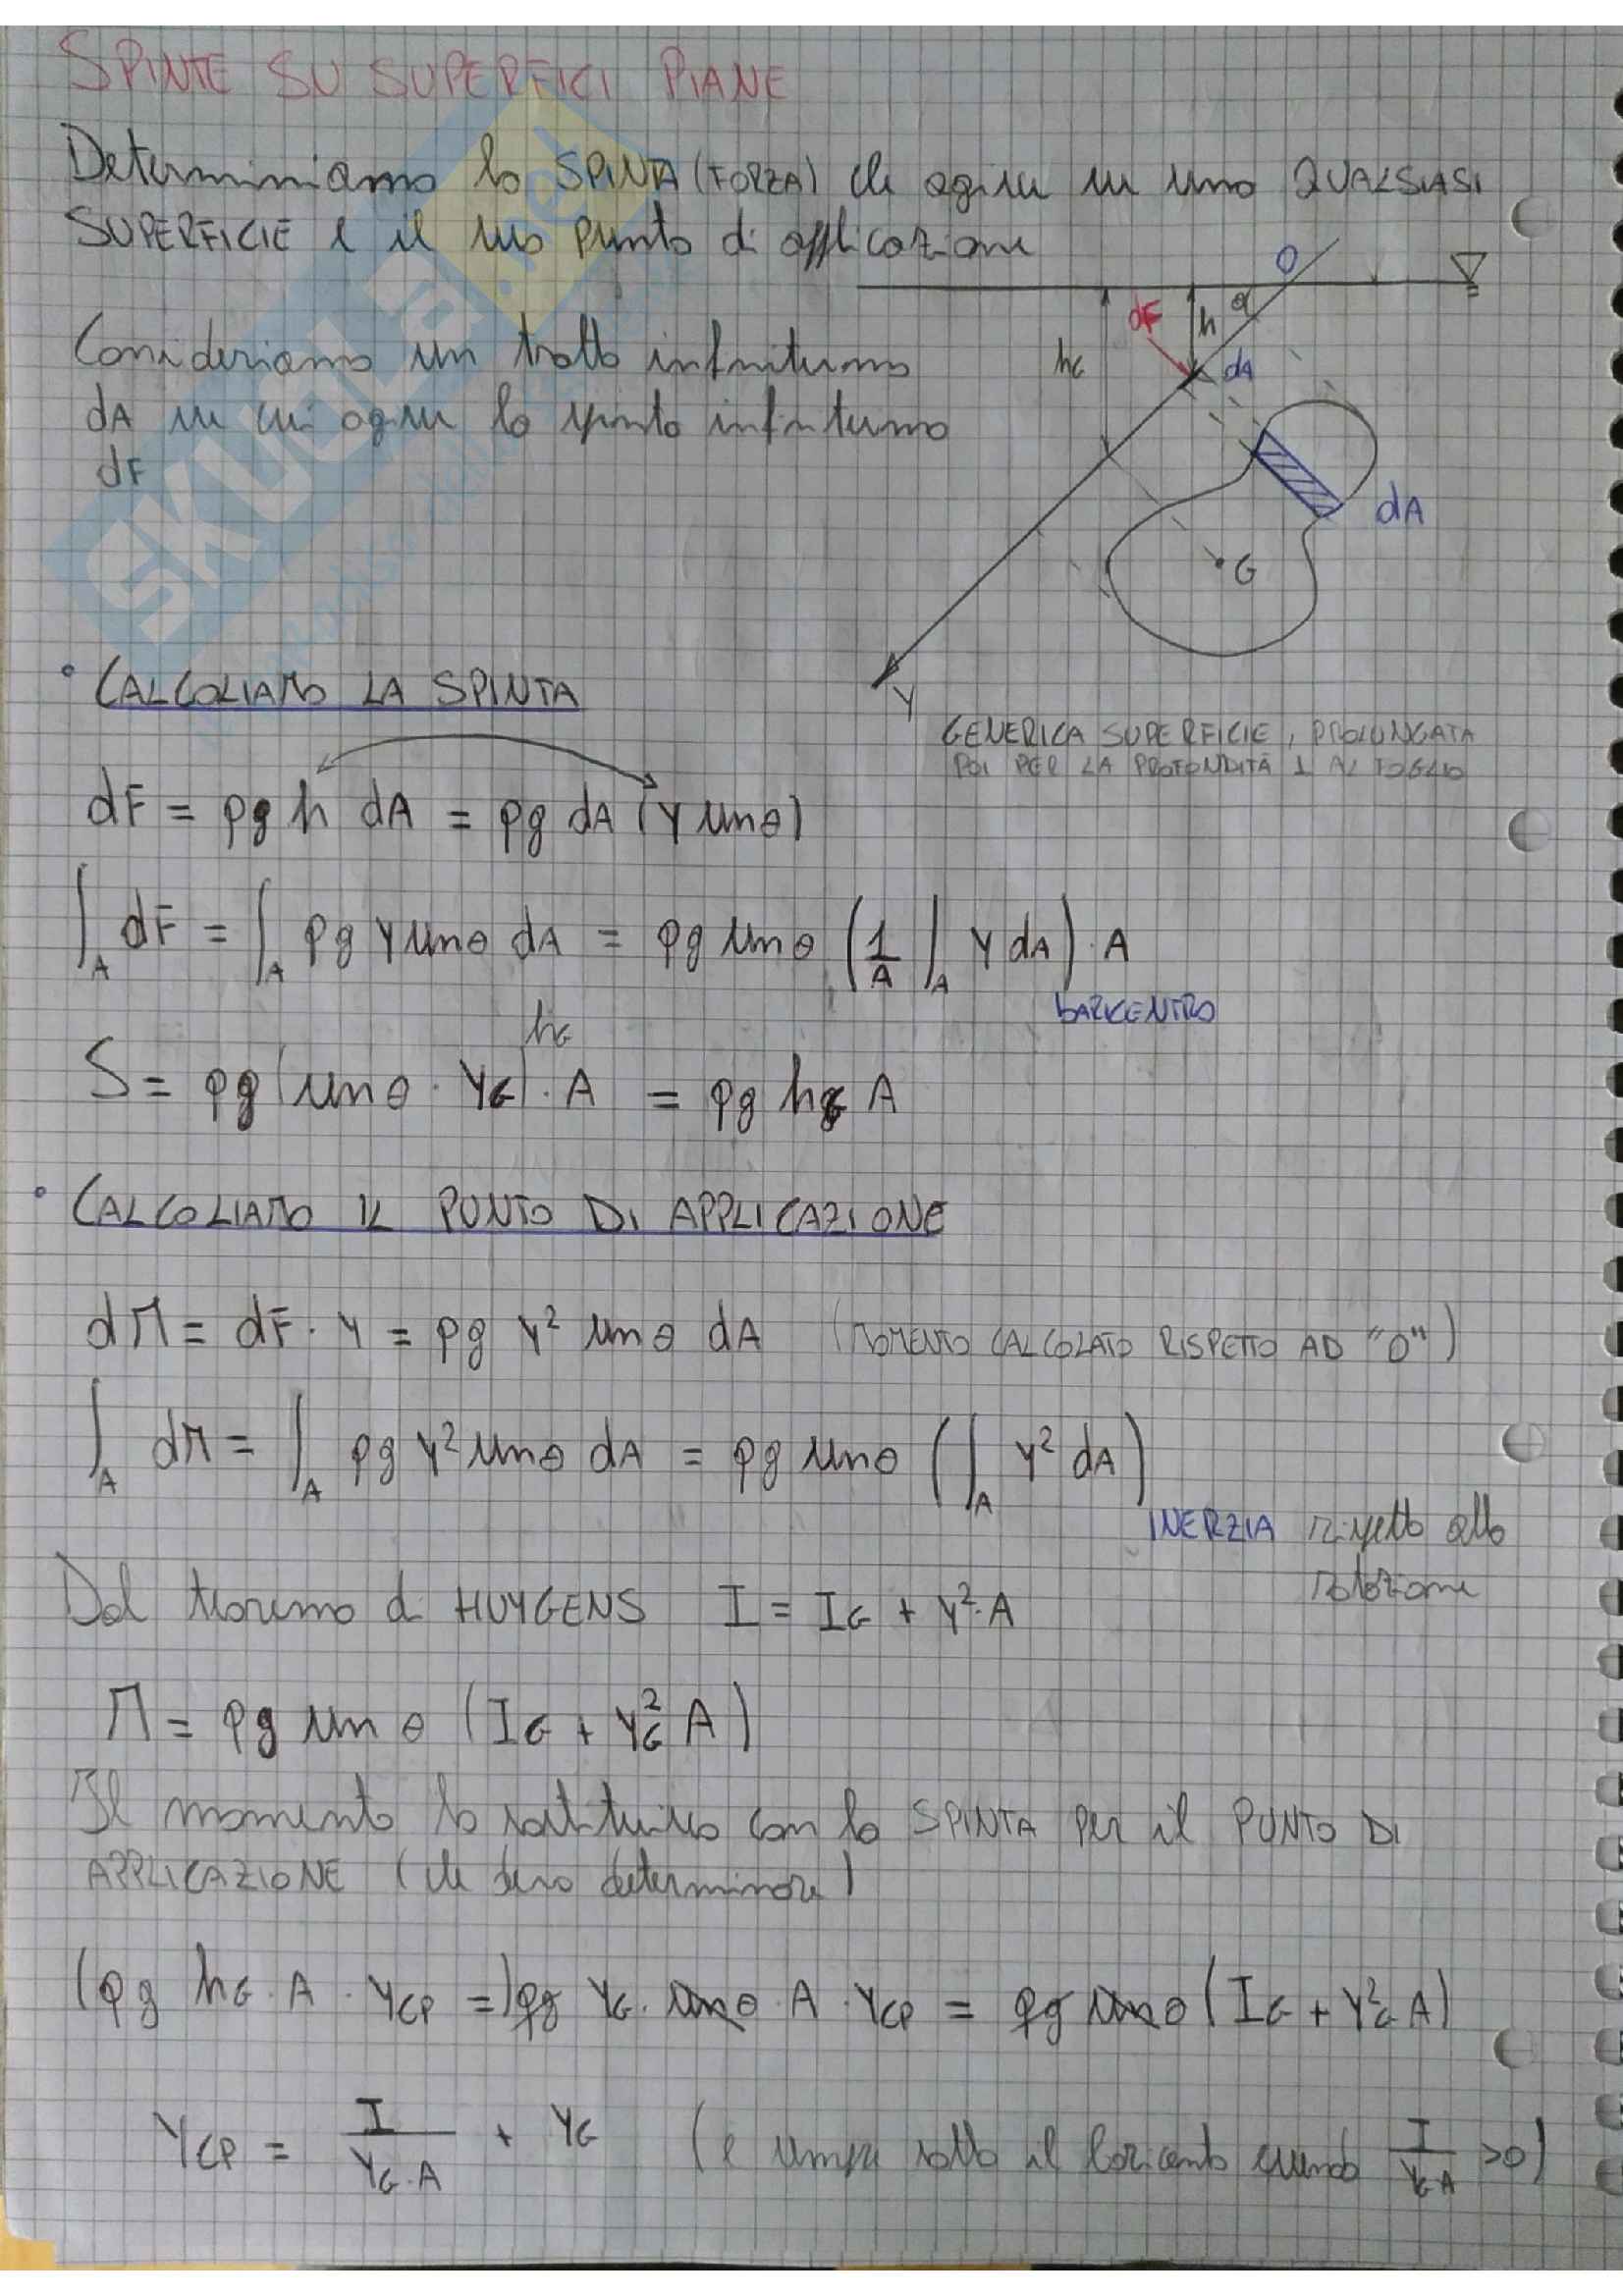 SPINTE SU SUPERFICI PIANE
Determiniamo la SPINTA (FORZA) che agisce su una QUALSIASI
SUPERFICIE e il suo punto di applicazione
O
dF
h
α
hG
dA
Consideriamo un tratto infinitesimo
dA su cui agisce la spinta infinitesima
dF
dA
G
Y
SKUOLA.net
GENERICA SUPERFICIE, PROLUNGATA
POI PER LA PROFONDITÀ ⊥ AL FOGLIO
• CALCOLIAMO LA SPINTA
dF = ρg h dA = ρg dA (Y sinθ)
∫A dF = ∫A ρg Y sinθ dA = ρg sinθ (1/A ∫A Y dA) · A
BARICENTRO
hG
S = ρg (sinθ · YG) · A = ρg hG A
• CALCOLIAMO IL PUNTO DI APPLICAZIONE
dM = dF · Y = ρg Y² sinθ dA (MOMENTO CALCOLATO RISPETTO AD "O")
∫A dM = ∫A ρg Y² sinθ dA = ρg sinθ (∫A Y² dA)
INERZIA rispetto alla
rotazione
Dal teorema di HUYGENS I = IG + Y² · A
M = ρg sinθ (IG + YG² A)
Il momento lo sostituisco con la SPINTA PER il PUNTO DI
APPLICAZIONE (che devo determinare)
(ρg hG · A · YCP =) ρg YG · sinθ · A · YCP = ρg sinθ (IG + YG² A)
YCP = I / YG · A + YG (è sempre sotto il baricentro essendo I / YG A > 0)